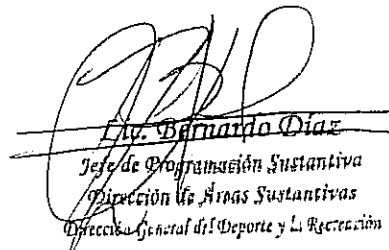 Lic. Bernardo Díaz
Jefe de Programación Sustantiva
Dirección de Áreas Sustantivas
Dirección General del Deporte y La Recreación